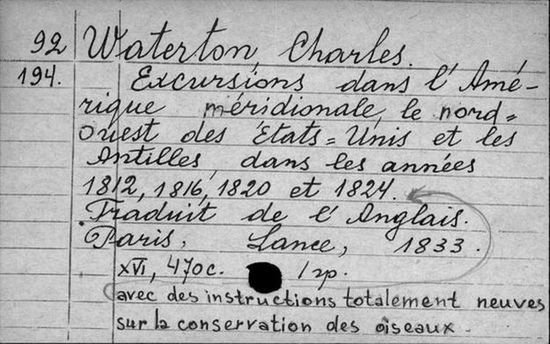 92 Waterton, Charles.
194. Excursions dans l'Amé-
rique méridionale, le nord=
ouest des États=Unis et les
Antilles, dans les années
1812, 1816, 1820 et 1824.
Traduit de l'Anglais.
Paris, Lance, 1833.
XVI, 470c. 1 гр.
avec des instructions totalement neuves
sur la conservation des oiseaux.